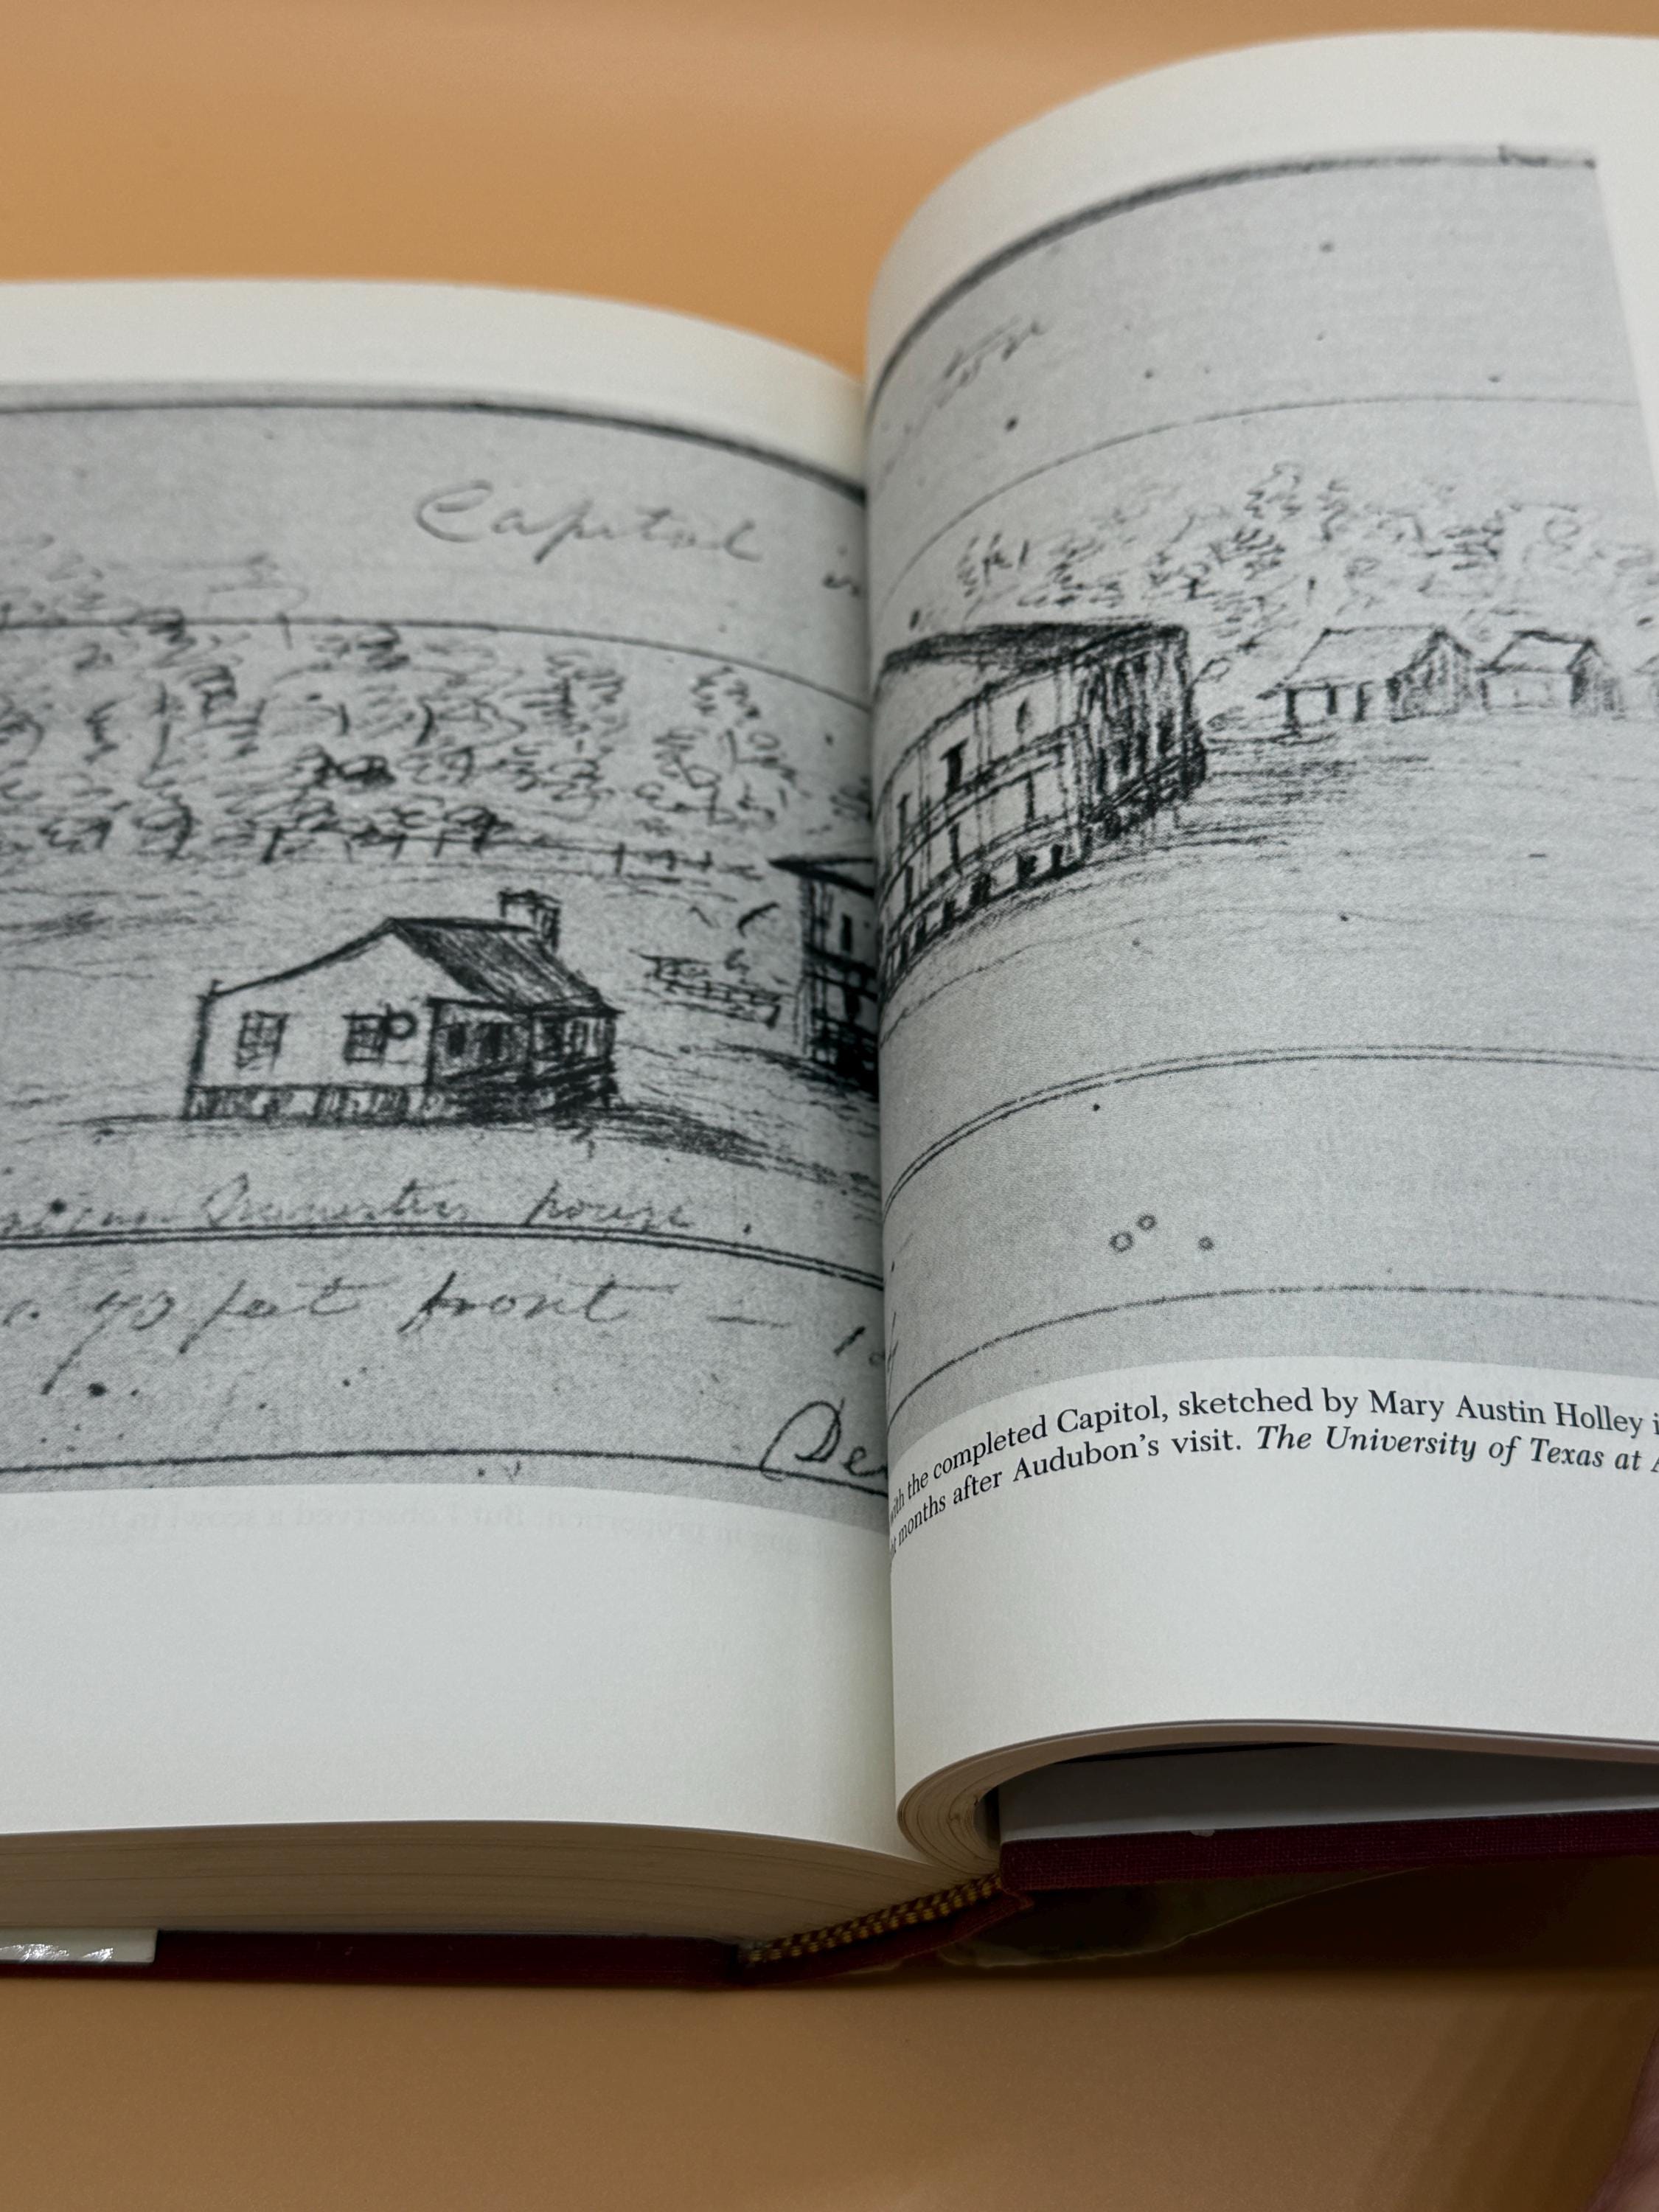 Capitol in
house.
70 feet front —
with the completed Capitol, sketched by Mary Austin Holley
months after Audubon's visit. The University of Texas at